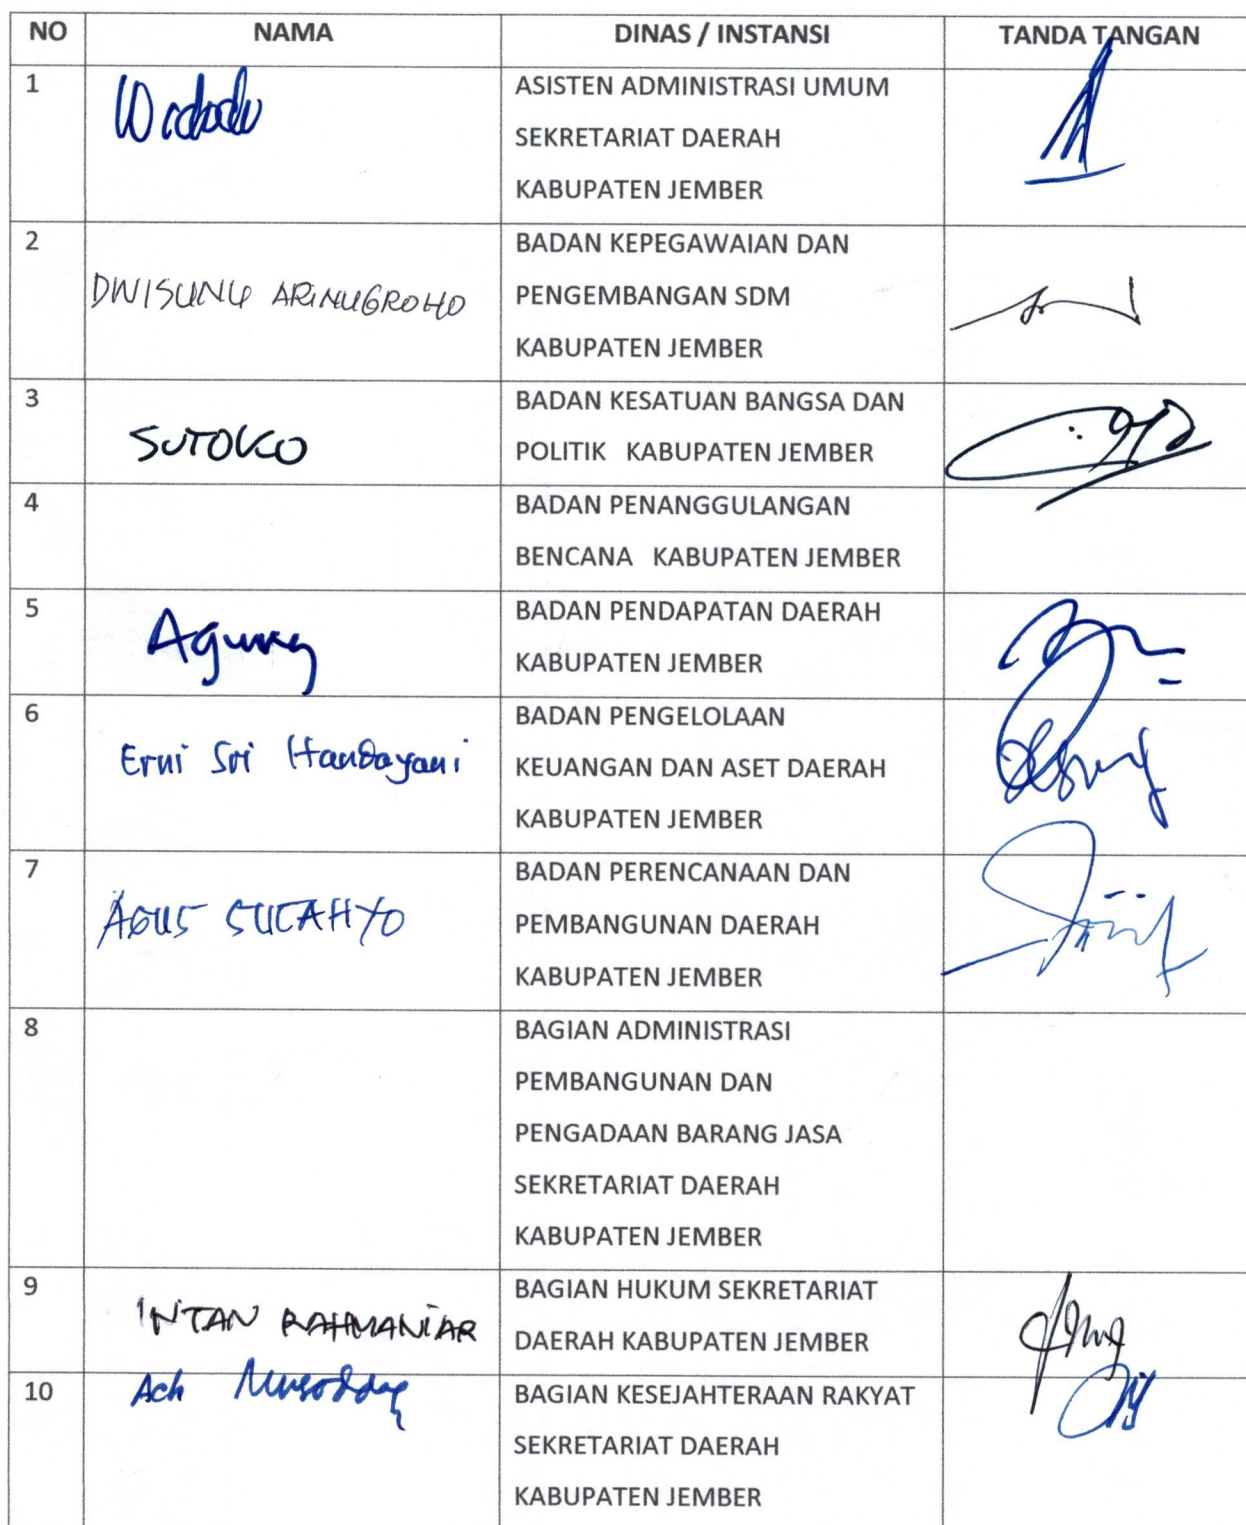 NO NAMA DINAS / INSTANSI TANDA TANGAN
1 Widodo ASISTEN ADMINISTRASI UMUM
SEKRETARIAT DAERAH
KABUPATEN JEMBER
2 DWISUNU ARINUGROHO BADAN KEPEGAWAIAN DAN
PENGEMBANGAN SDM
KABUPATEN JEMBER
3 SUTOKO BADAN KESATUAN BANGSA DAN
POLITIK KABUPATEN JEMBER
4 BADAN PENANGGULANGAN
BENCANA KABUPATEN JEMBER
5 Agung BADAN PENDAPATAN DAERAH
KABUPATEN JEMBER
6 BADAN PENGELOLAAN
Erni Sri Handayani KEUANGAN DAN ASET DAERAH
KABUPATEN JEMBER
7 BADAN PERENCANAAN DAN
AGUS SUCAHYO PEMBANGUNAN DAERAH
KABUPATEN JEMBER
8 BAGIAN ADMINISTRASI
PEMBANGUNAN DAN
PENGADAAN BARANG JASA
SEKRETARIAT DAERAH
KABUPATEN JEMBER
9 BAGIAN HUKUM SEKRETARIAT
INTAN RAHMANIAR DAERAH KABUPATEN JEMBER
10 Ach BAGIAN KESEJAHTERAAN RAKYAT
SEKRETARIAT DAERAH
KABUPATEN JEMBER